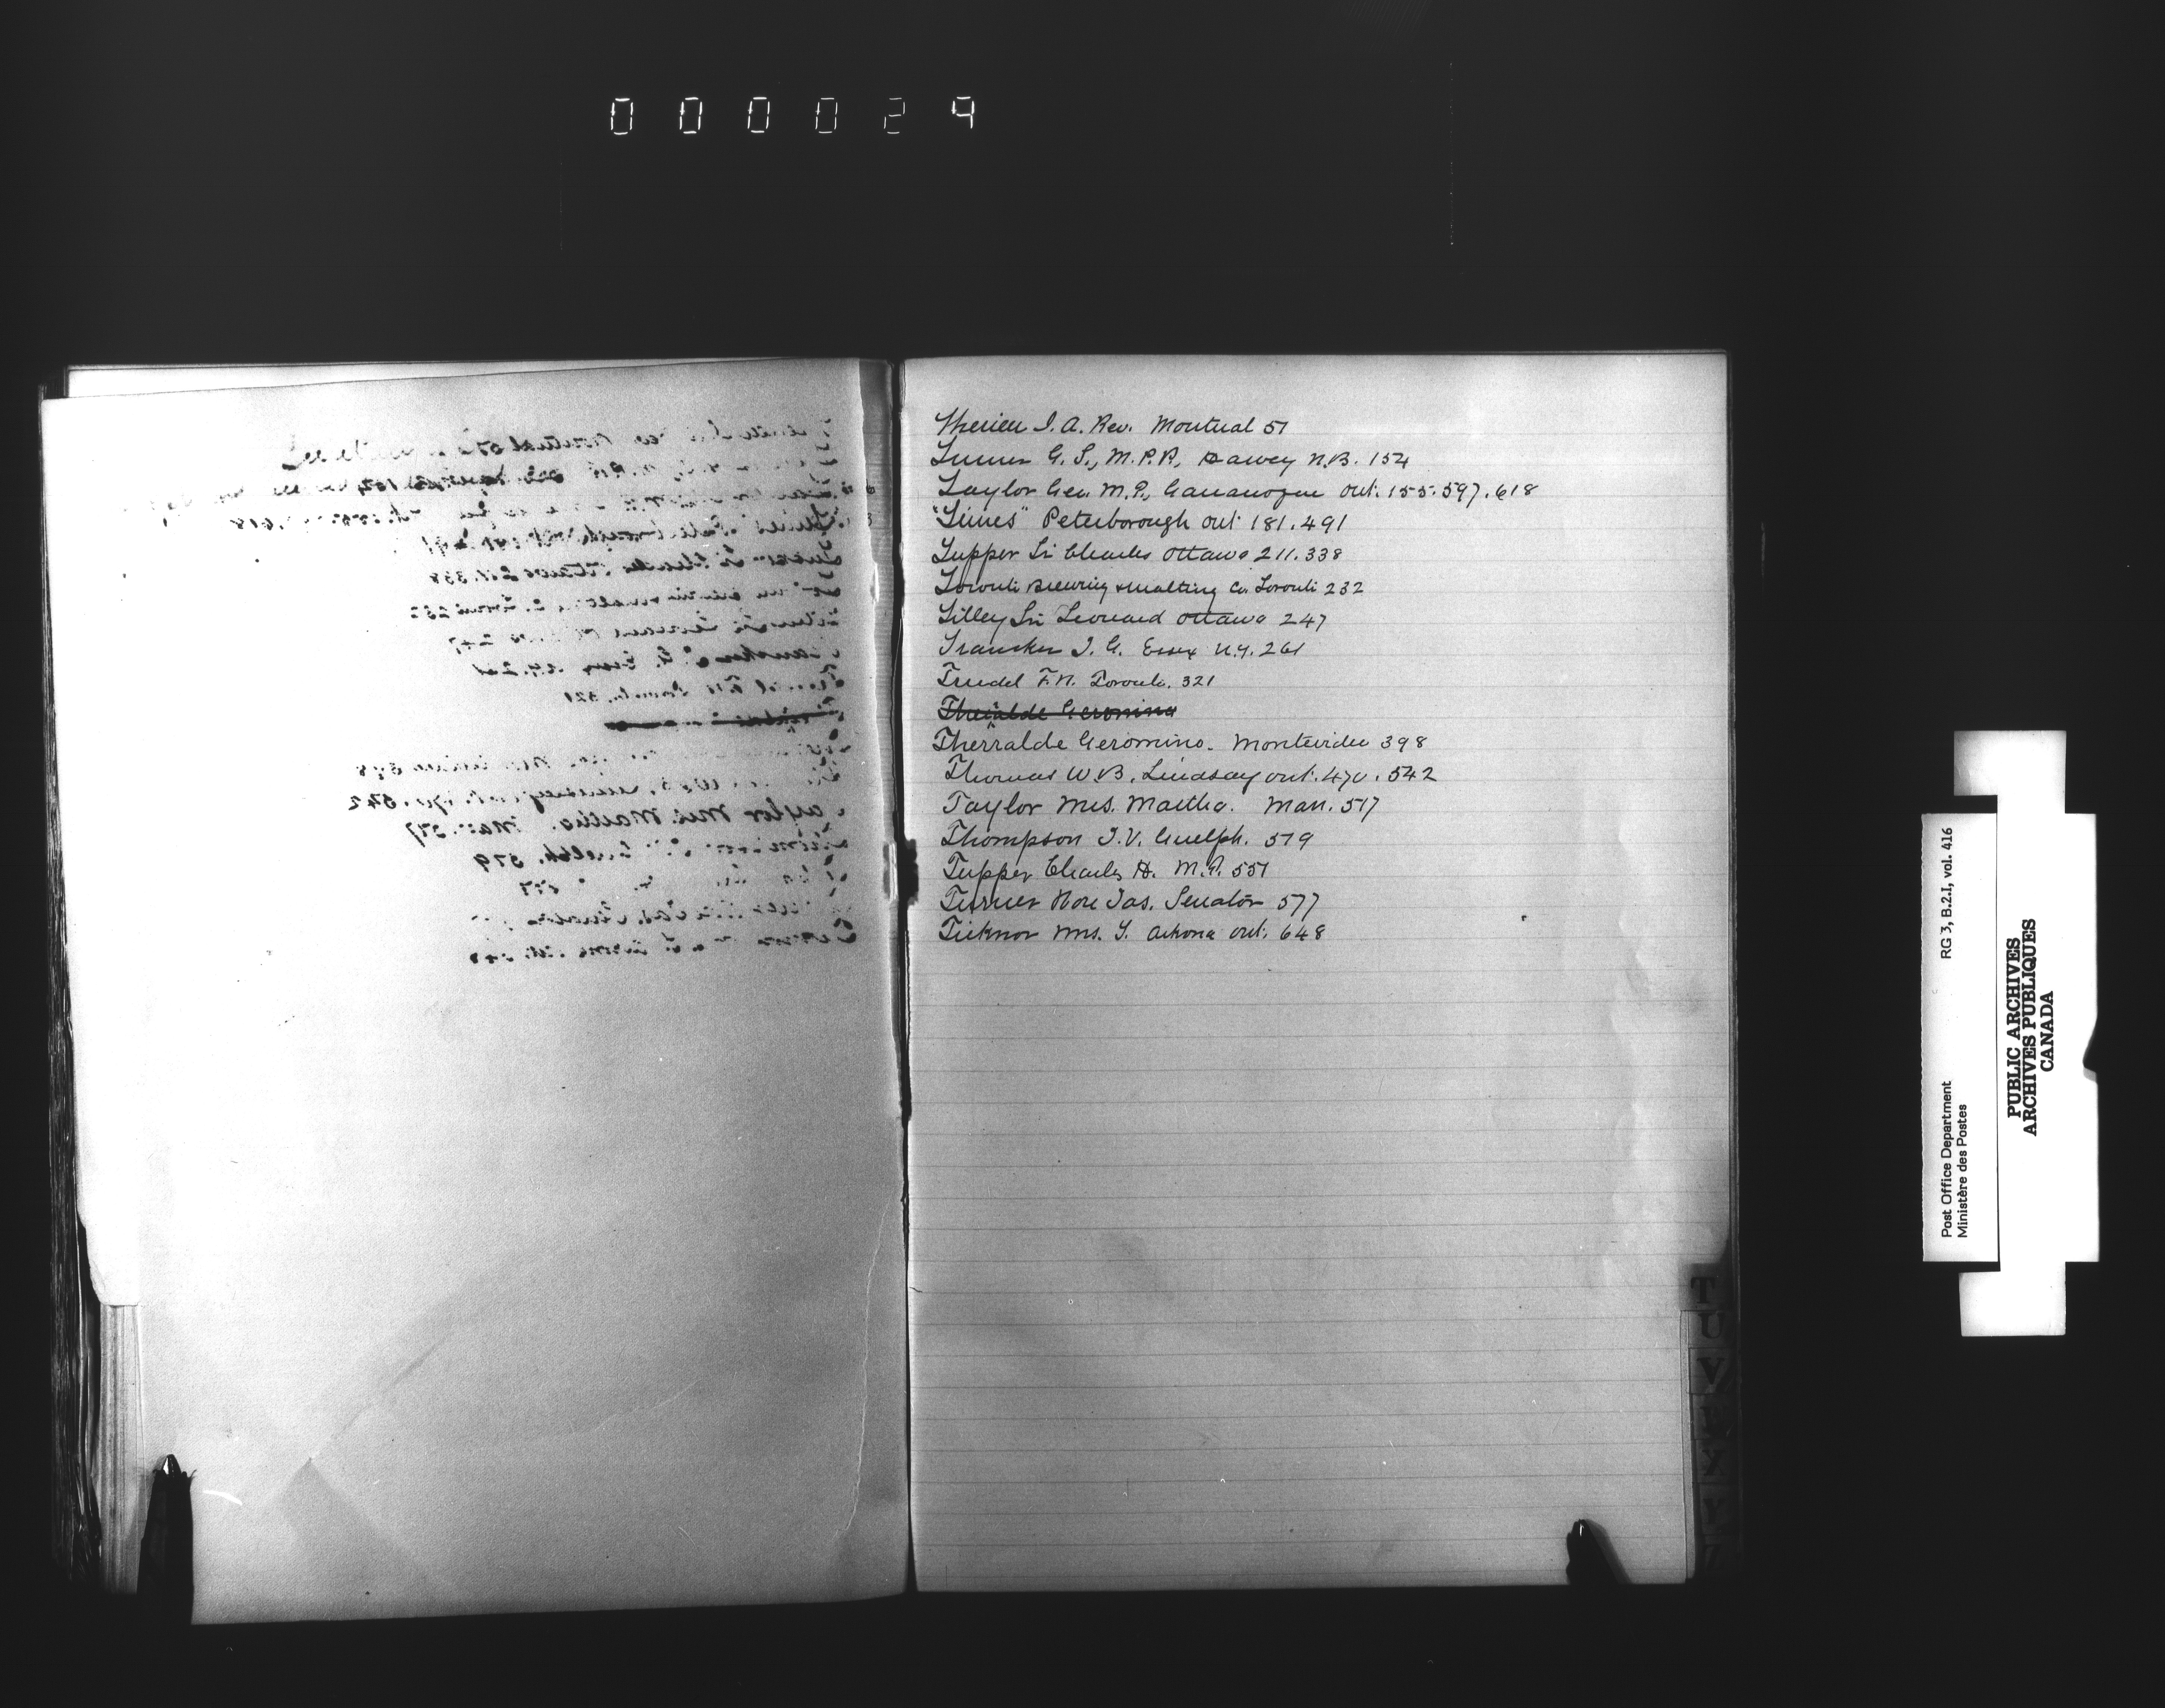 000029
Therien J. A. Rev. Montreal 51
Turner G. S., M.P.P., Harvey N.B. 154
Taylor Geo. M.P., Gananoque Ont. 155.597.618
"Times" Peterborough Ont 181.491
Tupper Sir Charles Ottawa 211.338
Toronto Brewing & Malting Co. Toronto 232
Tilley Sir Leonard Ottawa 247
J. G. Essex N.Y. 261
Trudel F.N. Toronto. 321
Therralde Geromino
Therralde Geromino. Montevideo 398
Thomas W.B. Lindsay Ont. 470.542
Taylor Mrs. Martha. Man. 517
Thompson J.V. Guelph. 519
Tupper Charles H. M.P. 551
Turner Hon Jas. Senator 577
Ticknor Mrs. Y. Arkona Ont. 648
T
U
V
W
X
Y
Z
Post Office Department
Ministère des Postes
RG 3, B.2.I, vol. 416
PUBLIC ARCHIVES
ARCHIVES PUBLIQUES
CANADA